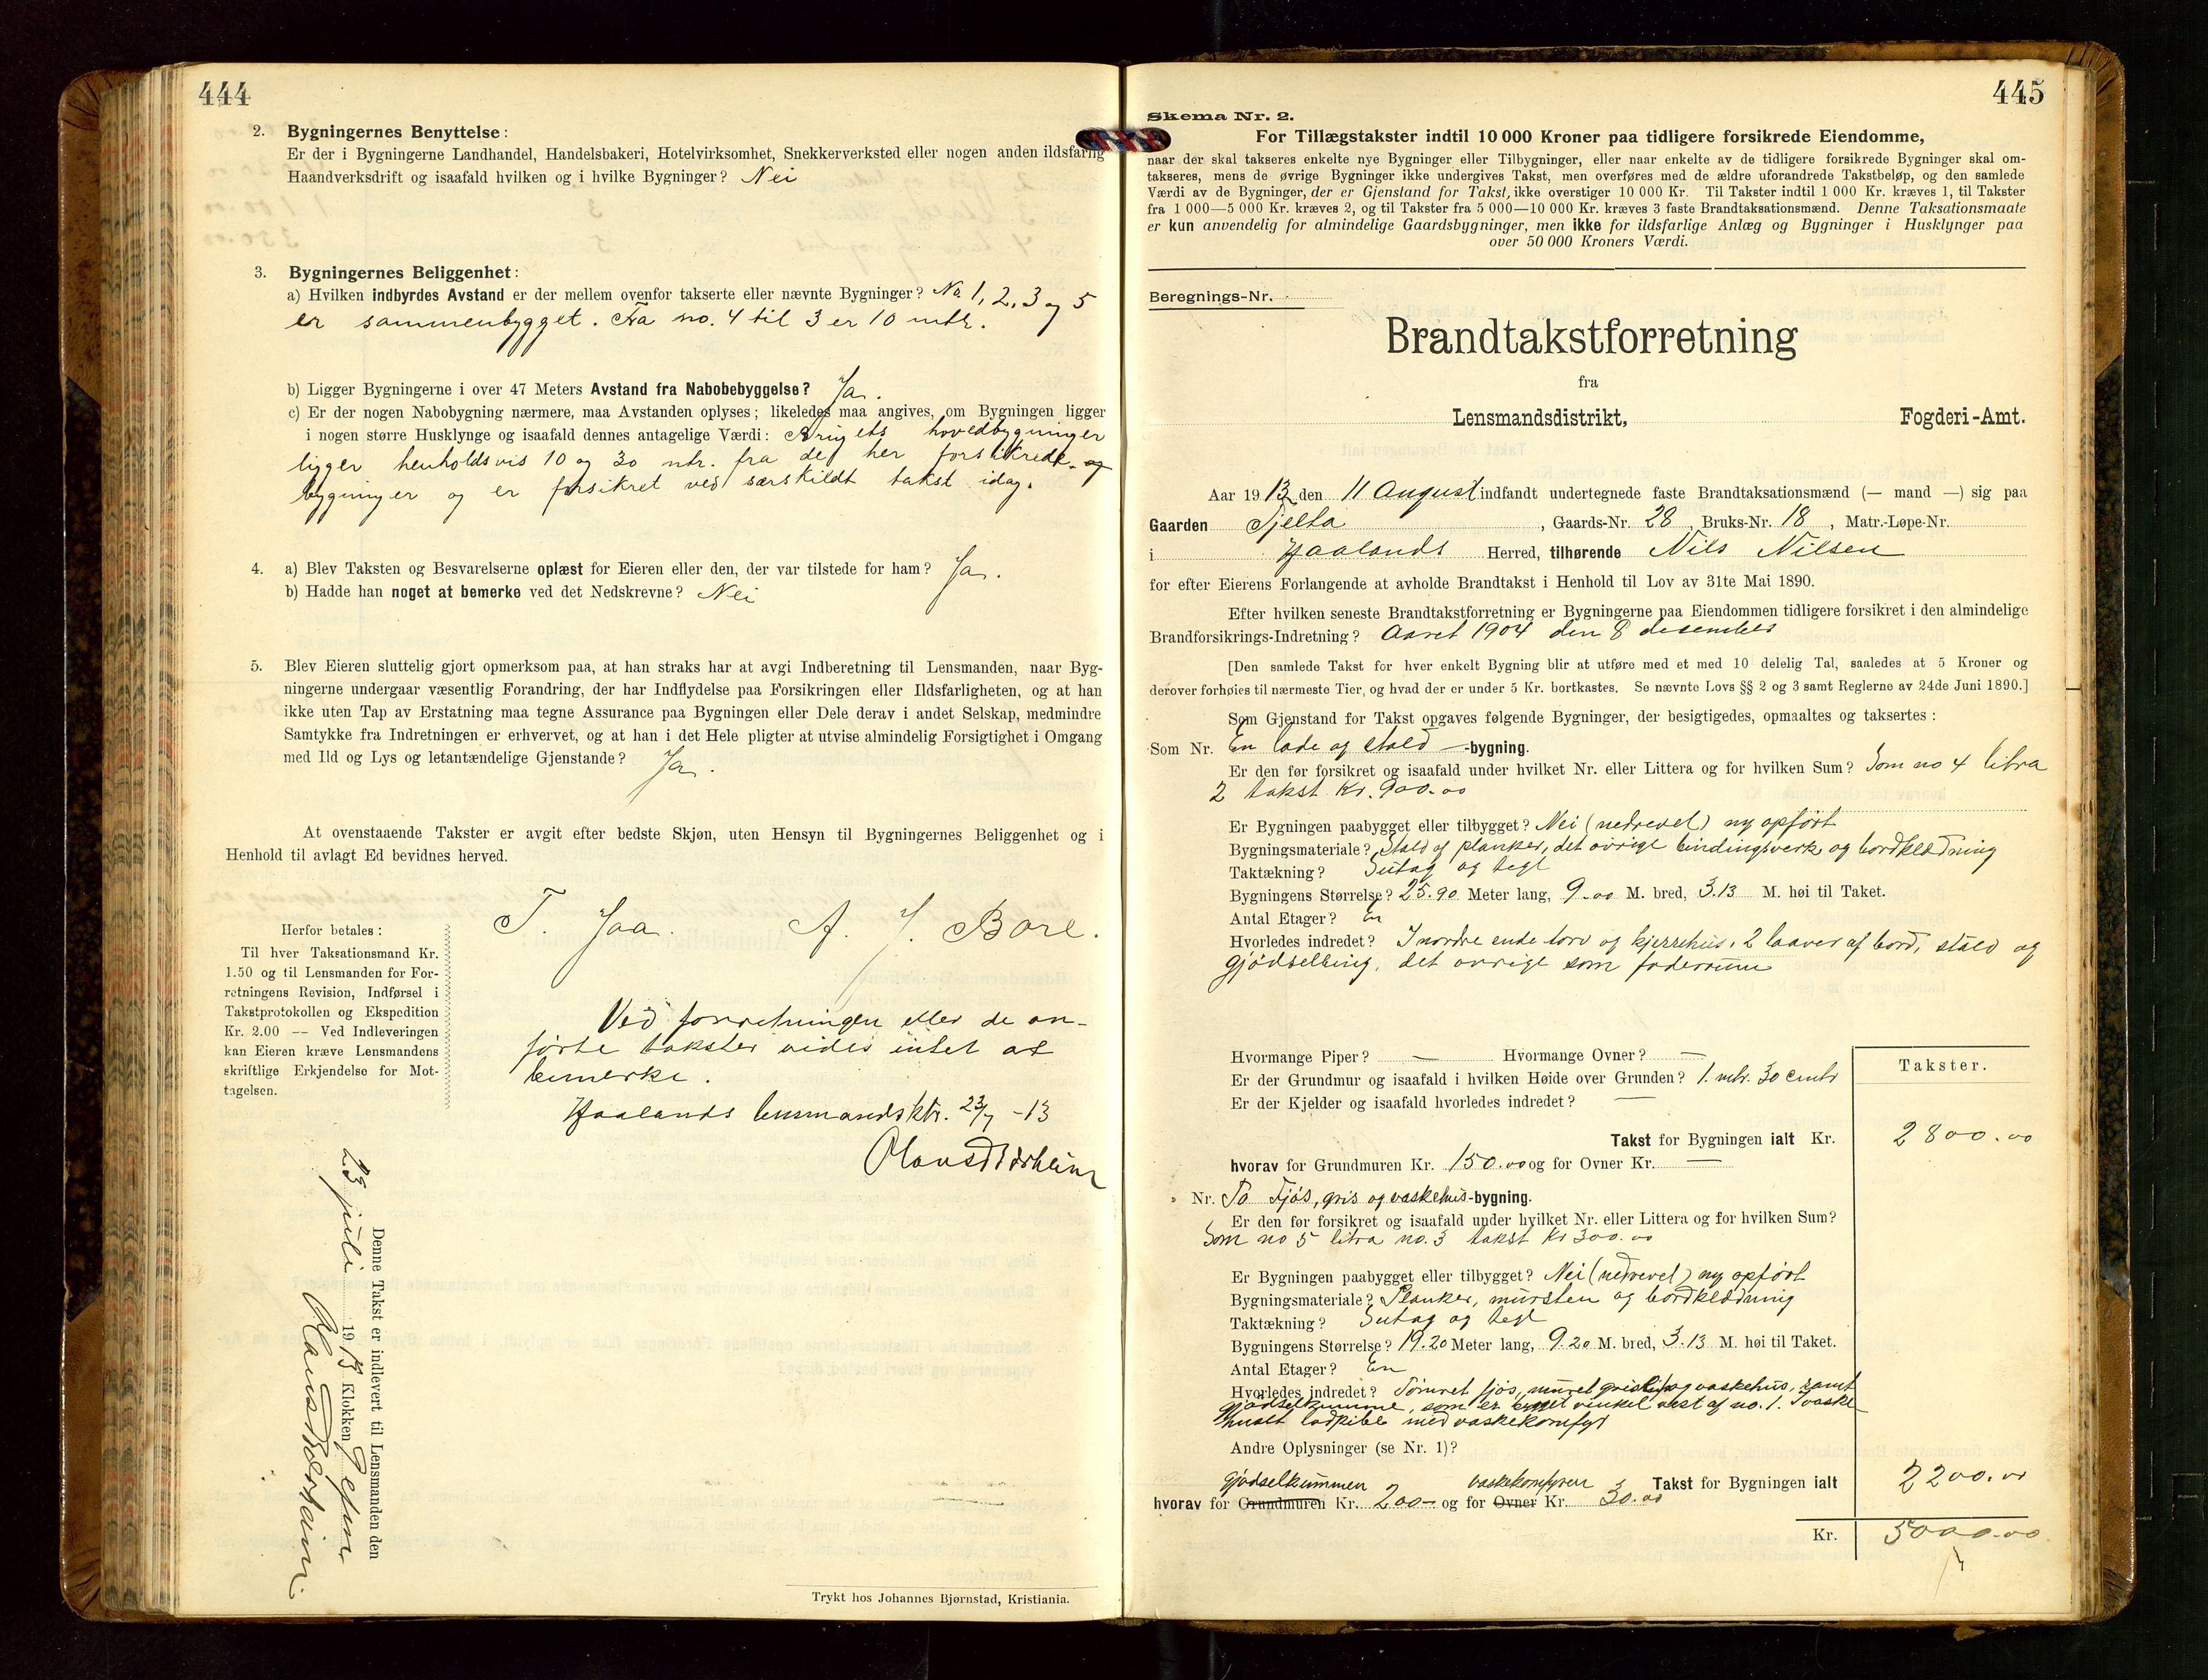 444
2. Bygningernes Benyttelse:
Er der i Bygningerne Landhandel, Handelsbakeri, Hotelvirksomhet, Snekkerverksted eller nogen anden ildsfarlig
Haandverksdrift og isaafald hvilken og i hvilke Bygninger? Nei
3. Bygningernes Beliggenhet:
a) Hvilken indbyrdes Avstand er der mellem ovenfor takserte eller nævnte Bygninger? No. 1, 2, 3 og 5
er sammenbygget. Fra no. 4 til 3 er 10 mtr.
b) Ligger Bygningerne i over 47 Meters Avstand fra Nabobebyggelse? Ja.
c) Er der nogen Nabobygning nærmere, maa Avstanden oplyses; likeledes maa angives, om Bygningen ligger
i nogen større Husklynge og isaafald dennes antagelige Værdi: Brugets hovedbygninger
ligger henholdsvis 10 og 30 mtr. fra de her forsikrede og
bygninger og er forsikret ved særskildt takst idag.
4. a) Blev Taksten og Besvarelserne oplæst for Eieren eller den, der var tilstede for ham? Ja.
b) Hadde han noget at bemerke ved det Nedskrevne? Nei
5. Blev Eieren sluttelig gjort opmerksom paa, at han straks har at avgi Indberetning til Lensmanden, naar Byg-
ningerne undergaar væsentlig Forandring, der har Indflydelse paa Forsikringen eller Ildsfarligheten, og at han
ikke uten Tap av Erstatning maa tegne Assurance paa Bygningen eller Dele derav i andet Selskap, medmindre
Samtykke fra Indretningen er erhvervet, og at han i det Hele pligter at utvise almindelig Forsigtighet i Omgang
med Ild og Lys og letantændelige Gjenstande? Ja.
At ovenstaaende Takster er avgit efter bedste Skjøn, uten Hensyn til Bygningernes Beliggenhet og i
Henhold til avlagt Ed bevidnes herved.
T. Jaa. A. J. Bore.
Herfor betales:
Til hver Taksationsmand Kr.
1.50 og til Lensmanden for For-
retningens Revision, Indførsel i
Takstprotokollen og Ekspedition
Kr. 2.00 — Ved Indleveringen
kan Eieren kræve Lensmandens
skriftlige Erkjendelse for Mot-
tagelsen.
Ved forretningen eller de an-
førte takster vides intet at
bemerke.
Haalands lensmandsktr. 23/7 -13
Denne Takst er indlevert til Lensmanden den
23 juli 1913 Klokken
Trykt hos Johannes Bjørnstad, Kristiania.
445
Skema Nr. 2.
For Tillægstakster indtil 10 000 Kroner paa tidligere forsikrede Eiendomme,
naar der skal takseres enkelte nye Bygninger eller Tilbygninger, eller naar enkelte av de tidligere forsikrede Bygninger skal om-
takseres, mens de øvrige Bygninger ikke undergives Takst, men overføres med de ældre uforandrede Takstbeløp, og den samlede
Værdi av de Bygninger, der er Gjenstand for Takst, ikke overstiger 10 000 Kr. Til Takster indtil 1 000 Kr. kræves 1, til Takster
fra 1 000—5 000 Kr. kræves 2, og til Takster fra 5 000—10 000 Kr. kræves 3 faste Brandtaksationsmænd. Denne Taksationsmaate
er kun anvendelig for almindelige Gaardsbygninger, men ikke for ildsfarlige Anlæg og Bygninger i Husklynger paa
over 50 000 Kroners Værdi.
Beregnings-Nr.
Brandtakstforretning
fra
Lensmandsdistrikt, Fogderi-Amt.
Aar 1913 den 11 August indfandt undertegnede faste Brandtaksationsmænd (— mand —) sig paa
Gaarden Tjelta, Gaards-Nr. 28, Bruks-Nr. 18, Matr.-Løpe-Nr.
i Haalands Herred, tilhørende Nils Nilsen
for efter Eierens Forlangende at avholde Brandtakst i Henhold til Lov av 31te Mai 1890.
Efter hvilken seneste Brandtakstforretning er Bygningerne paa Eiendommen tidligere forsikret i den almindelige
Brandforsikrings-Indretning? Aaret 1904 den 8 desember
[Den samlede Takst for hver enkelt Bygning blir at utføre med et med 10 delelig Tal, saaledes at 5 Kroner og
derover forhøies til nærmeste Tier, og hvad der er under 5 Kr. bortkastes. Se nævnte Lovs §§ 2 og 3 samt Reglerne av 24de Juni 1890.]
Som Gjenstand for Takst opgaves følgende Bygninger, der besigtigedes, opmaaltes og taksertes:
Som Nr. En lade og stald -bygning.
Er den før forsikret og isaafald under hvilket Nr. eller Littera og for hvilken Sum? Som no 4 litra
2 takst Kr. 900.00
Er Bygningen paabygget eller tilbygget? Nei (nedrevet) ny opført
Bygningsmateriale? Stald af planker, det øvrige bindingsverk og bordklædning
Taktækning? Sutag og tegl
Bygningens Størrelse? 25.90 Meter lang, 9.00 M. bred, 3.13 M. høi til Taket.
Antal Etager? En
Hvorledes indredet? I nordre ende torv og kjerrehus, 2 laaver af bord, stald og
gjødselbing, det øvrige som foderrum
Hvormange Piper? — Hvormange Ovner? —
Er der Grundmur og isaafald i hvilken Høide over Grunden? 1. mtr. 30 cmtr
Er der Kjelder og isaafald hvorledes indredet? —
Takster.
Takst for Bygningen ialt Kr. 2800.00
hvorav for Grundmuren Kr. 150.00 og for Ovner Kr. —
Nr. To Fjøs, gris og vaskehus-bygning.
Er den før forsikret og isaafald under hvilket Nr. eller Littera og for hvilken Sum?
Som no 5 litra no. 3 takst Kr 300.00
Er Bygningen paabygget eller tilbygget? Nei (nedrevet) ny opført
Bygningsmateriale? Planker, mursten og bordklædning
Taktækning? Sutag og tegl
Bygningens Størrelse? 19.20 Meter lang, 9.20 M. bred, 3.13 M. høi til Taket.
Antal Etager? En
Hvorledes indredet? Tømret fjøs, muret og vaskehus, samt
gjødselkumme, som er vinkel vest af no. 1. I vaske
huset med vaskekomfyr
Andre Oplysninger (se Nr. 1)?
gjødselkummen vaskekomfyren Takst for Bygningen ialt 2200.00
hvorav for Grundmuren Kr. 200— og for Ovner Kr. 30.00
Kr. 5000.00